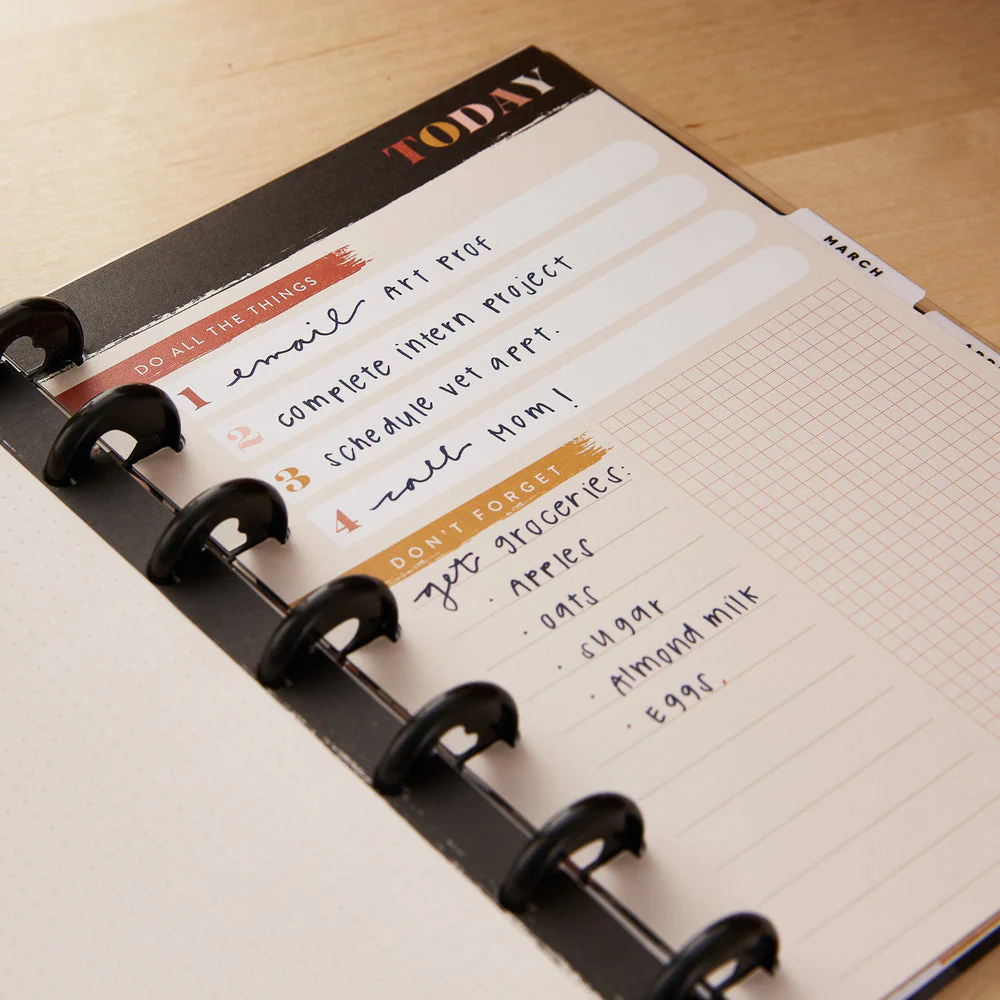 TODAY
MARCH
DO ALL THE THINGS
1 email Art prof
2 complete intern project
3 schedule vet appt.
4 call Mom!
DON'T FORGET
get groceries:
· Apples
· oats
· sugar
· Almond milk
· Eggs.